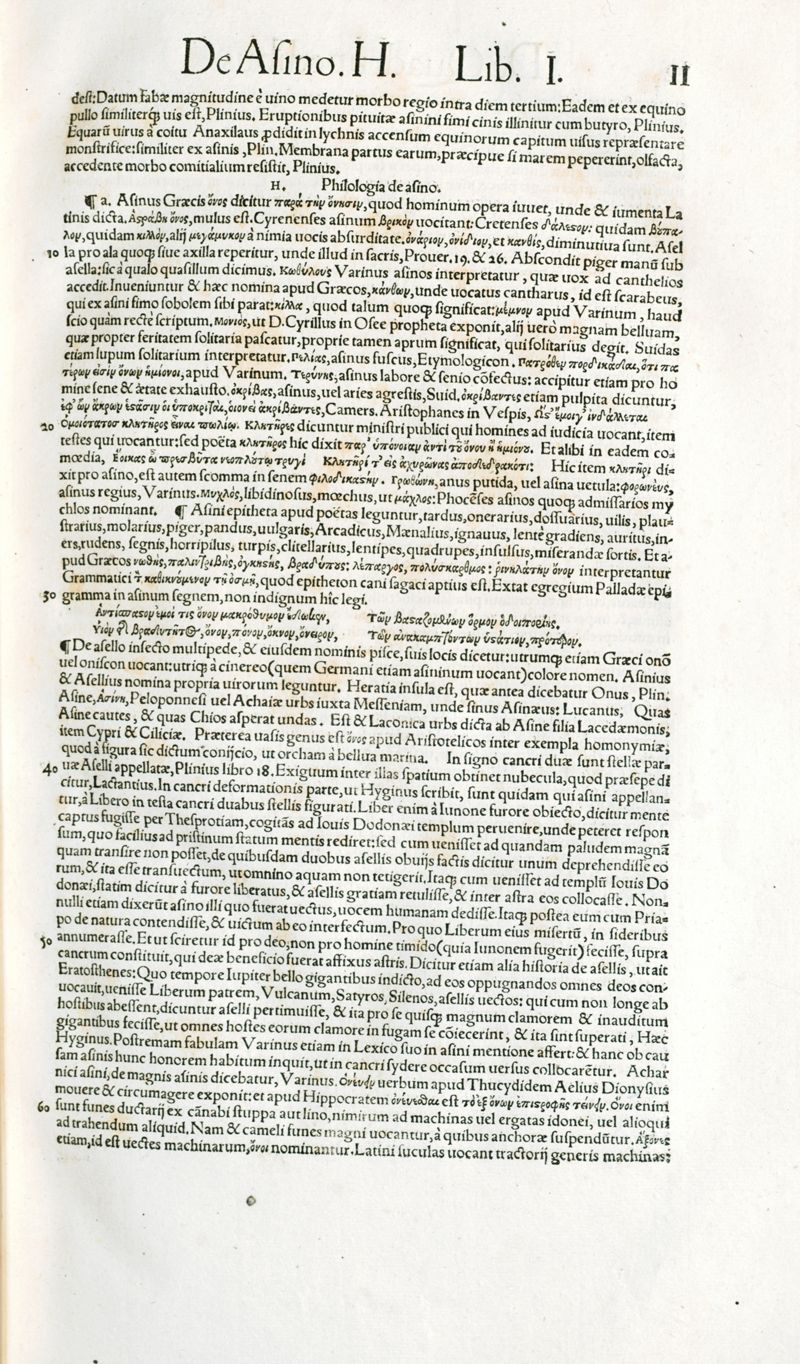 De Asino. H. Lib. I. 11
dest: Datum fabæ magnitudine è uino medetur morbo regio intra diem tertium: Eadem et ex equino
pullo similiterq́ uis est, Plinius. Eruptionibus pituitæ asinini fimi cinis illinitur cum butyro, Plinius.
Equarũ uirus à coitu Anaxilaus ꝓdidit in lychnis accensum equinorum capitum uisus repræsentare
monstrifice: similiter ex asinis, Plin. Membrana partus earum, præcipue si marem pepererint, olfacta,
accedente morbo comitialium resistit, Plinius.
H. Philologia de asino.
¶ a. Asinus Græcis ὄνος dicitur παρὰ τὴν ὄνησιν, quod hominum opera iuuet, unde & iumenta La
tinis dicta. Ἀσράβη ὄνος, mulus est. Cyrenenses asinum βρικὸν uocitant: Cretenses quidam
quidam κιλλὸν, alij μεγάμυκον à nimia uocis absurditate. ὀνάριον, ὀνίδιον, et κανθίς, diminutiua sunt. Asel
10 la pro ala quoq́ siue axilla reperitur, unde illud in sacris, Prouer. 19. & 26. Abscondit piger manũ sub
asella: sic à qualo quasillum dicimus. Κωθύλους Varinus asinos interpretatur, quæ uox ad canthelios
accedit. Inueniuntur & hæc nomina apud Græcos, κάνθων, unde uocatus cantharus, id est scarabeus,
qui ex asini fimo sobolem sibi parat: κίλλα, quod talum quoq́ significat: μέμνον apud Varinum, haud
scio quàm rectè scriptum. Μονιὸς, ut D. Cyrillus in Osee propheta exponit, alij uerò magnam belluam,
quæ propter feritatem solitaria pascatur, propriè tamen aprum significat, qui solitarius degit. Suidas
etiam lupum solitarium interpretatur. Πελίας, asinus fuscus, Etymologicon. ὅτι πα
τέρων εἰσὶν ὄνων ἡμίονοι, apud Varinum. Τερύνης, asinus labore & senio cõfectus: accipitur etiam pro ho
mine sene & ætate exhausto. ὀκρίβας, asinus, uel aries agrestis, Suid. ὀκρίβαντες etiam pulpita dicuntur,
ἐφ' ὧν ἄκρων ἵστασιν οἱ ὑποκριταὶ, οἱονεὶ ἀκρίβαντες, Camers. Aristophanes in Vespis, ὥς' ἔμοιγ' ἰνδάλλεται
20 Ὁμοιότατος κλητῆρος εἶναι πωλίῳ. Κλητῆρες dicuntur ministri publici qui homines ad iudicia uocant, item
testes qui uocantur: sed poëta κλητῆρος hic dixit παρ' ὑπόνοιαν ἀντὶ τοῦ ὄνου ἢ ἡμιόνου. Et alibi in eadem co-
mœdia, Ἔοικας ὦ πρεσβῦτα νεοπλούτῳ τρυγὶ Κλητῆρί τ' εἰς ἀχυρῶνας ἀποδεδρακότι: Hic item κλητῆρι di-
xit pro asino, est autem scomma in senem φιλοδικαστὴν. Γρωθώνη, anus putida, uel asina uetula: φορωνεὺς,
asinus regius, Varinus. Μυχλὸς, libidinosus, mœchus, ut μάχλος: Phocẽses asinos quoq́ admissarios my
chlos nominant. ¶ Asini epitheta apud poëtas leguntur, tardus, onerarius, dossuarius, uilis, plau-
strarius, molarius, piger, pandus, uulgaris, Arcadicus, Mænalius, ignauus, lentè gradiens, auritus, in-
ers, rudens, segnis, horripilus, turpis, clitellarius, lentipes, quadrupes, insulsus, miserandæ sortis. Et a-
pud Græcos νωθὴς, παλιντριβὴς, ὀγκηστὴς, βραδύπους: λέπαργος, πολύσκαρθμος: ῥινηλάτην ὄνον interpretantur
Grammatici τὸν καθικνούμενον τῇ ὀσμῇ, quod epitheton cani sagaci aptius est. Extat egregium Palladæ epi-
30 gramma in asinum segnem, non indignum hic legi.
Ἀντίσπασόν ἐμοί τις ὄνον μακρόθυμον ἔδωκεν, Τῶν βασταζομένων ὅρμον ὁδοιπορίης.
Υἱὸν τῆς βραδυτῆτος, ὄνον, πόνον, ὄκνον, ὄνειρον, Τῶν ἀνακαμπτόντων ὑστάτιον, πρότερον.
¶ De asello insecto multipede, & eiusdem nominis pisce, suis locis dicetur: utrumq́ etiam Græci onõ
uel oniscon uocant: utriq́ à cinereo (quem Germani etiam asininum uocant) colore nomen. Asinius
& Asellius nomina propria uirorum leguntur. Heratia insula est, quæ antea dicebatur Onus, Plin.
Asine, Ἀσίνη, Peloponnesi uel Achaiæ urbs iuxta Messeniam, unde sinus Asinæus: Lucanus, Quas
Asine cautes, & quas Chios asperat undas. Est & Laconica urbs dicta ab Asine filia Lacedæmonis,
item Cypri & Ciliciæ. Præterea uasis genus est ὄνος apud Aristotelicos inter exempla homonymiæ,
quod à figura sic dictum conijcio, ut orcham à bellua marina. In signo cancri duæ sunt stellæ par-
40 uæ Aselli appellatæ, Plinius libro 18. Exiguum inter illas spatium obtinet nubecula, quod præsepe di
citur, Lactantius. In cancri deformationis parte, ut Hyginus scribit, sunt quidam qui asini appellan-
tur, à Libero in testa cancri duabus stellis figurati. Liber enim à Iunone furore obiecto, dicitur mente
captus fugisse per Thesprotiam, cogitãs ad Iouis Dodonæi templum peruenire, unde peteret respon
sum, quo facilius ad pristinum statum mentis rediret: sed cum uenisset ad quandam paludem magnã
quam transire non posset, de quibusdam duobus asellis obuijs factis dicitur unum deprehendisse eo
rum, & ita esse transuectum, ut omnino aquam non tetigerit. Itaq́ cum uenisset ad templũ Iouis Do
donæi, statim dicitur à furore liberatus, & asellis gratiam retulisse, & inter astra eos collocasse. Non-
nulli etiam dixerũt asino illi quo fuerat uectus, uocem humanam dedisse. Itaq́ postea eum cum Pria-
po de natura contendisse, & uictum ab eo interfectum. Pro quo Liberum eius misertũ, in sideribus
50 annumerasse. Et ut sciretur id pro deo, non pro homine timido (quia Iunonem fugerit) fecisse, supra
cancrum constituit, qui deæ beneficio fuerat affixus astris. Dicitur etiam alia historia de asellis, ut ait
Eratosthenes: Quo tempore Iupiter bello gigantibus indicto, ad eos oppugnandos omnes deos con-
uocauit, uenisse Liberum patrem, Vulcanum, Satyros, Silenos, asellis uectos: qui cum non longe ab
hostibus abessent, dicuntur aselli pertimuisse, & ita pro se quisq́ magnum clamorem & inauditum
gigantibus fecisse, ut omnes hostes eorum clamore in fugam se cõiecerint, & ita sint superati, Hæc
Hyginus. Postremam fabulam Varinus etiam in Lexico suo in asini mentione affert: & hanc ob cau
sam asinis hunc honorem habitum inquit, ut in cancri sydere occasum uersus collocarẽtur. Achar
nici asini, de magnis asinis dicebatur, Varinus. Ὀνεύειν uerbum apud Thucydidem Aelius Dionysius
mouere & circumagere exponit: et apud Hippocratem ὀνεύεσθαι est τὸ ἐξ ὄνων ἐπιστροφῆς τείνειν. Ὄνοι enim
60 sunt funes ductarij ex canabi stuppa aut lino, nimirum ad machinas uel ergatas idonei, uel alioqui
ad trahendum aliquid. Nam & cameli funes magni uocantur, à quibus anchoræ suspendũtur. Ἄξονες
etiam, id est uectes machinarum, ὄνοι nominantur. Latini suculas uocant tractorij generis machinas: